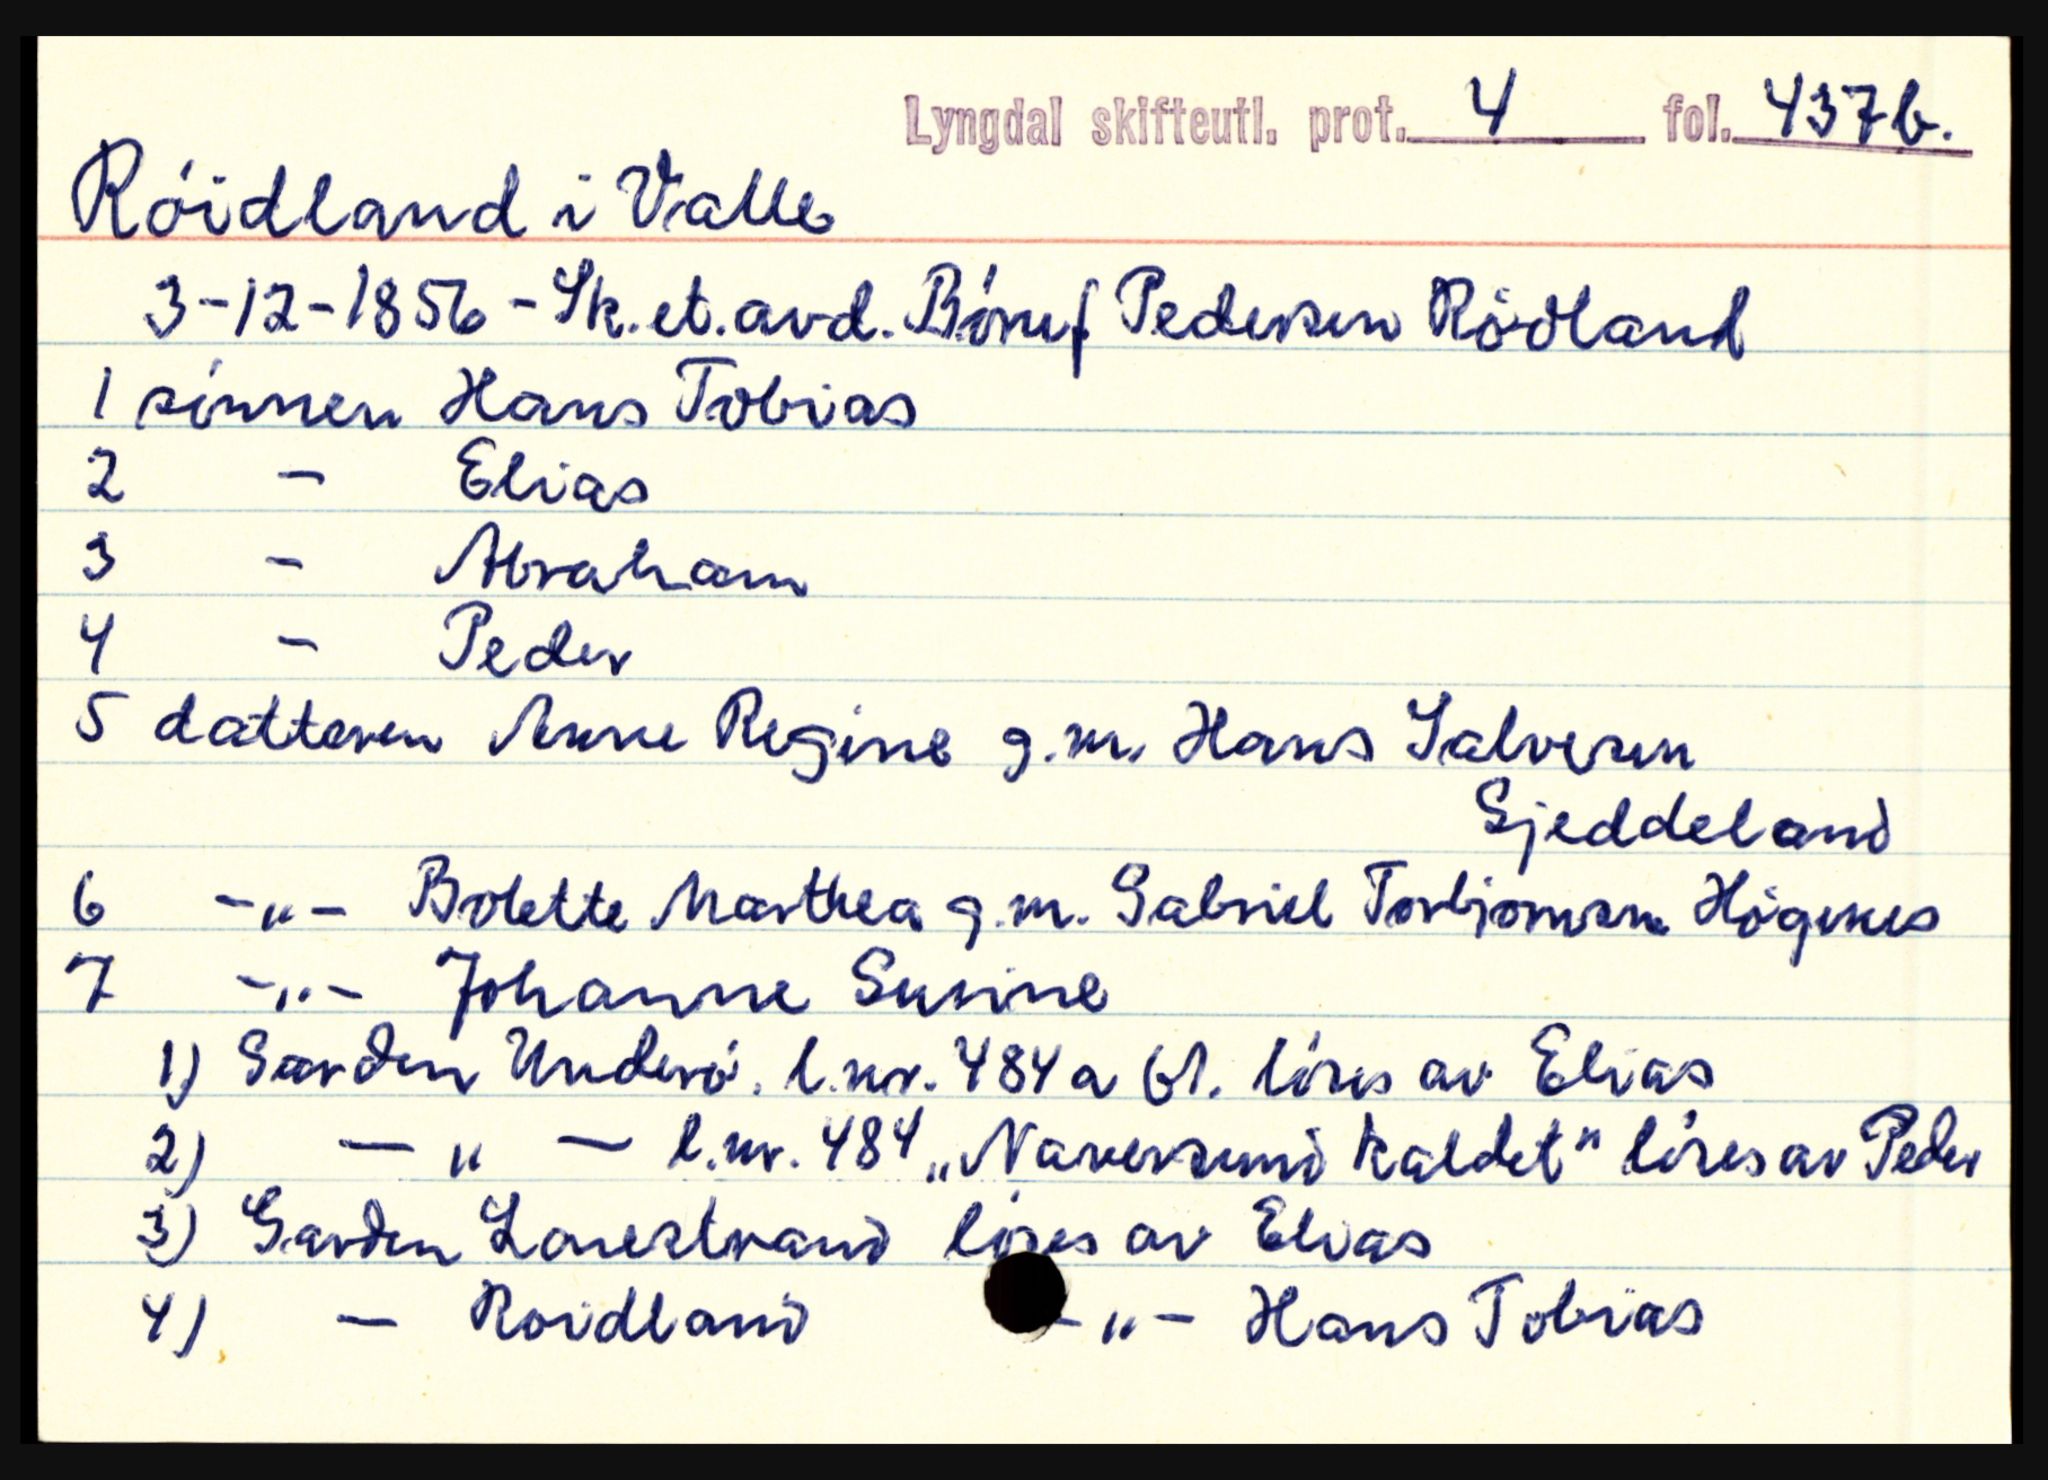 Lyngdal skifteutl. prot. 4 fol. 437b.
Róidland i Valle
3-12-1856 - Sk. et. avd. Pedersen Rödland
1 sónnen Hans Tobias
2 - Elias
3 - Abraham
4 - Peder
5 datteren Anne Regine g.m. Hans Salvesen
Gjeddeland
6 -"- Bolette Marthea g.m. Gabriel Torbjornsen Högenes
7 -"- Johanne Susine
1) Garden Underó. l.nr. 484 a löses av Elias
2) - " - l.nr. 484 „Naversund kaldet" lóses av Peder
3) Garden Lonestrand lóses av Elias
4) - Roidland -"- Hans Tobias